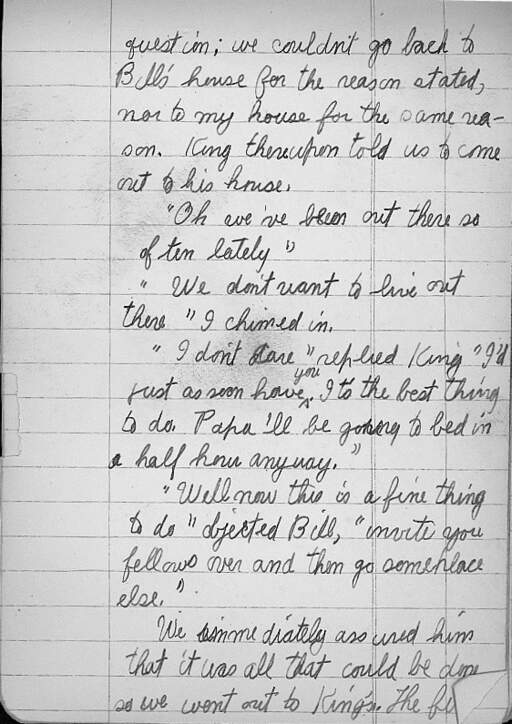 question; we couldn't go back to
Bill's house for the reason stated,
nor to my house for the same rea-
son. King thereupon told us to come
out to his house.
"Oh we've been out there so
often lately"
"We don't want to live out
there" I chimed in.
"I don't care" replied King "I'd
you
just as soon have. It's the best thing
to do. Papa'll be going to bed in
a half hour anyway."
"Well now this is a fine thing
to do" objected Bill, "invite you
fellows over and then go someplace
else."
We immediately assured him
that it was all that could be done
so we went out to King's. The